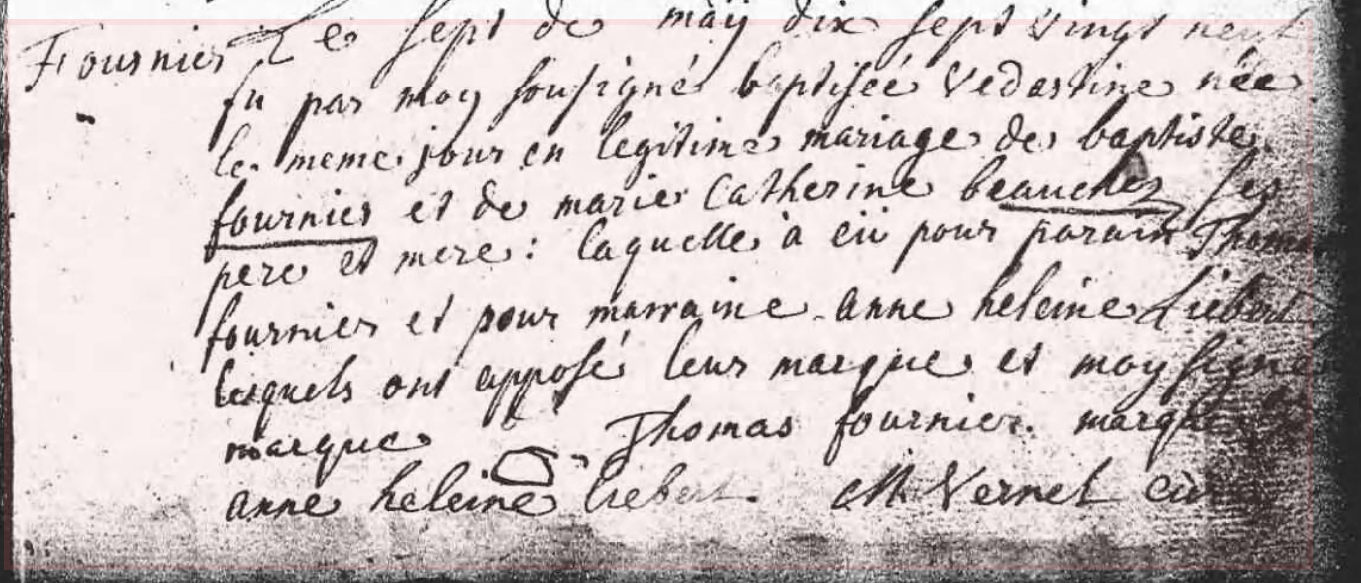 Fournier Le sept de maÿ dix sept vingt neuf
fu par moy sousigné baptisée Vedastine née
le meme jour en legitime mariage de baptiste
fournier et de marie Catherine beauchez ses
pere et mere : laquelle à eü pour parain Thomas
fournier et pour marraine anne heleine Liebert
lesquels ont apposé leur marque et moy signé
marque Thomas fournier. marque de
anne heleine liebert. M. Vernet curé